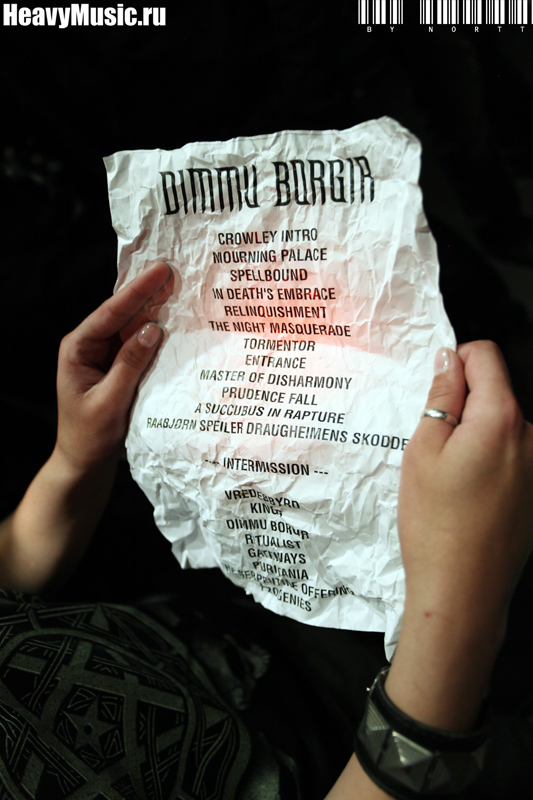 HeavyMusic.ru
BY NORTT
DIMMU BORGIR
CROWLEY INTRO
MOURNING PALACE
SPELLBOUND
IN DEATH'S EMBRACE
RELINQUISHMENT
THE NIGHT MASQUERADE
TORMENTOR
ENTRANCE
MASTER OF DISHARMONY
PRUDENCE FALL
A SUCCUBUS IN RAPTURE
RAABJØRN SPEILER DRAUGHEIMENS SKODDE
--- INTERMISSION ---
VREDESBYRD
DIMMU
RITUALIST
GATEWAYS
PURITANIA
SERPENTINE OFFERING